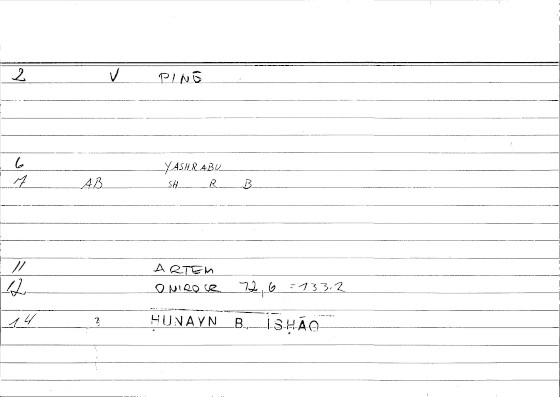 2 V PINĒ
6 YASHRABU
7 AB SH R B
11 ARTEM
12 ONIROCR 72,6 = 133.2
14 ? ḤUNAYN B. ISḤĀQ